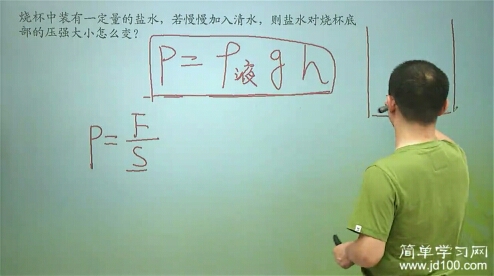 烧杯中装有一定量的盐水，若慢慢加入清水，则盐水对烧杯底
部的压强大小怎么变？
P=ρ液gh
P=F/S
简单学习网
www.jd100.com